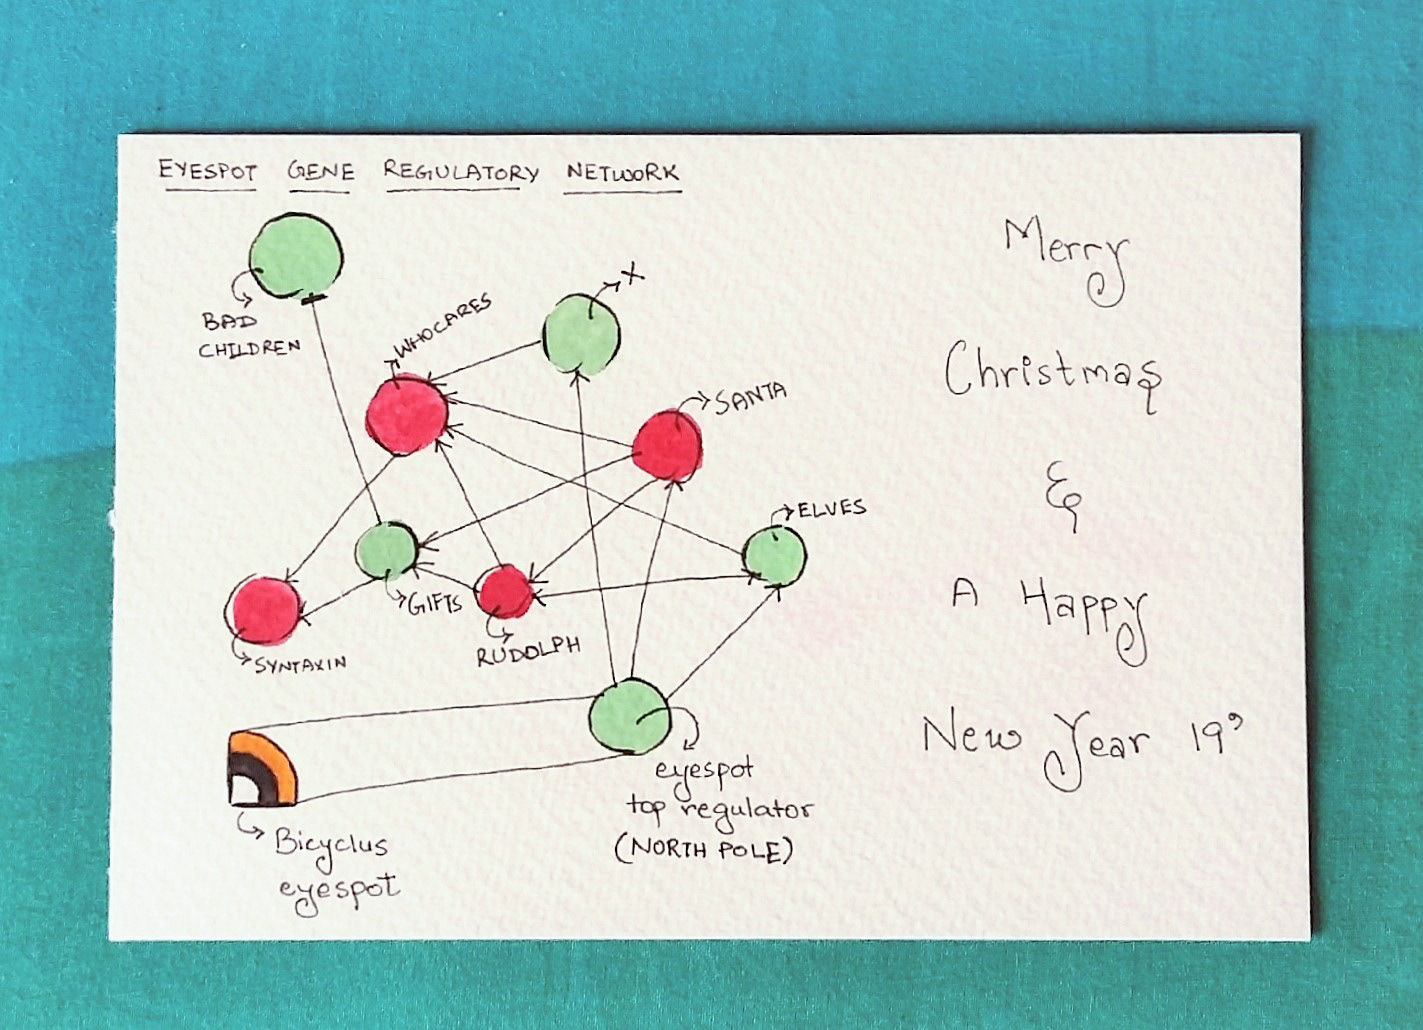 EYESPOT GENE REGULATORY NETWORK
BAD
CHILDREN
WHOCARES
X
SANTA
ELVES
GIFTS
RUDOLPH
SYNTAXIN
eyespot
top regulator
(NORTH POLE)
Bicyclus
eyespot
Merry
Christmas
&
A Happy
New Year 19'